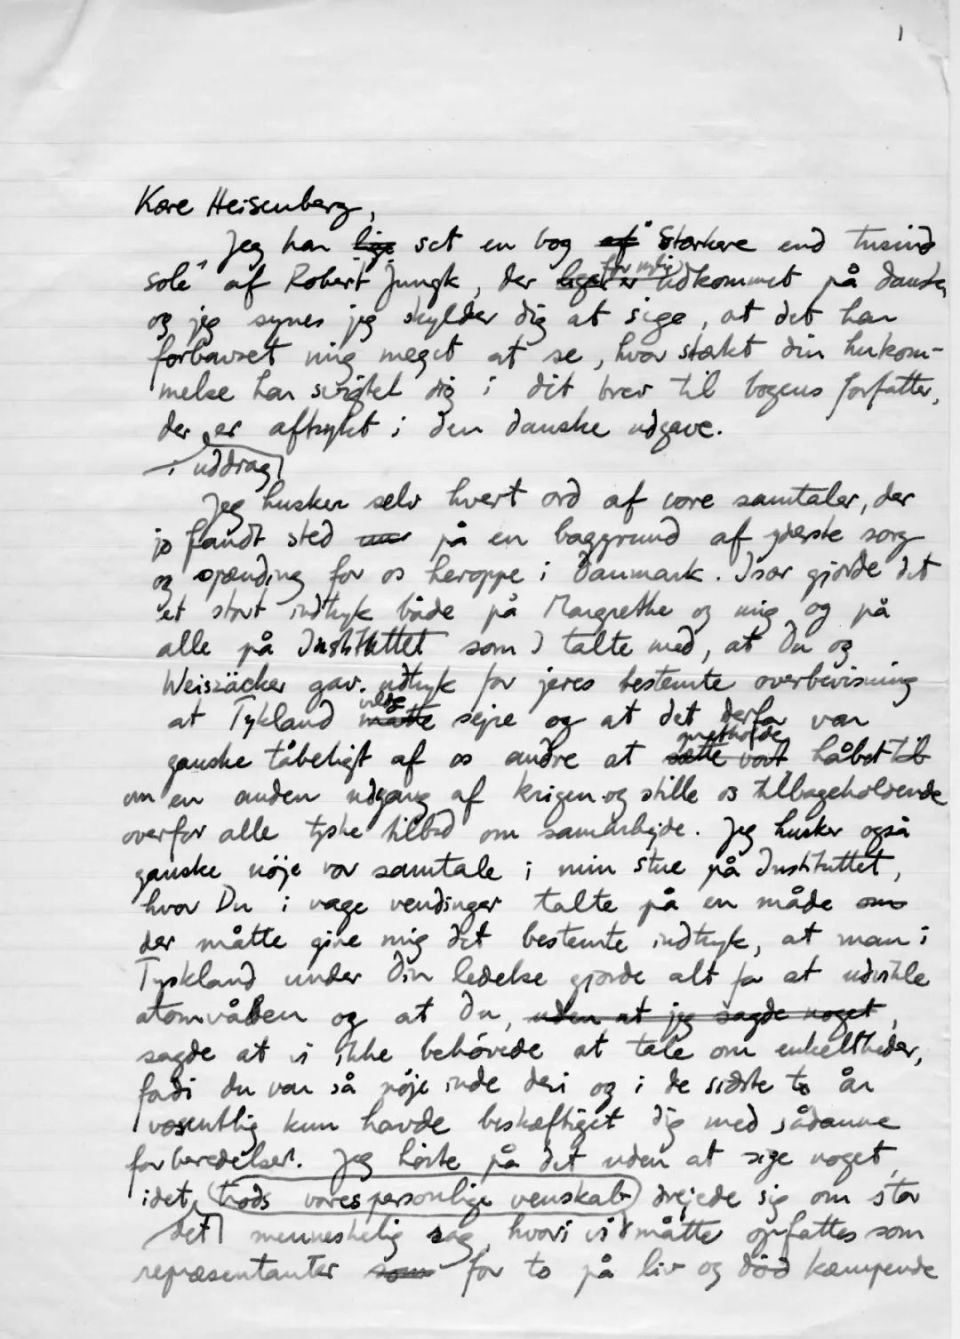 1
Kære Heisenberg,
Jeg har lige set en bog af "Stærkere end tusind
sole" af Robert Jungk, der lige er for nylig udkommet på dansk,
og jeg synes jeg skylder dig at sige, at det har
forbavset mig meget at se, hvor stærkt din hukom-
melse har svigtet dig i dit brev til bogens forfatter,
der er aftrykt i den danske udgave.
i uddrag
Jeg husker selv hvert ord af vore samtaler, der
jo fandt sted på en baggrund af yderste sorg
og spænding for os heroppe i Danmark. Især gjorde det
et stort indtryk både på Margrethe og mig og på
alle på Instituttet som I talte med, at Du og
Weiszäcker gav udtryk for jeres bestemte overbevisning
at Tykland måtte vilde sejre og at det derfor var
ganske tåbeligt af os andre at sætte vort opretholde håbet til
om en anden udgang af krigen og stille os tilbageholdende
overfor alle tyske tilbud om samarbejde. Jeg husker også
ganske nöje vor samtale i min stue på Instituttet,
hvor Du i vage vendinger talte på en måde som
der måtte give mig det bestemte indtryk, at man i
Tyskland under Din ledelse gjorde alt for at udvikle
atomvåben og at Du, uden at jeg sagde noget,
sagde at vi ikke behövede at tale om enkeltheder,
fordi du var så nöje inde deri og i de sidste to år
væsentlig kun havde beskæftiget dig med sådanne
forberedelser. Jeg hörte på det uden at sige noget,
idet trods vores personlige venskab drejede sig om stor
det menneskelig sag, hvori vi måtte opfattes som
repræsentanter som for to på liv og död kæmpende